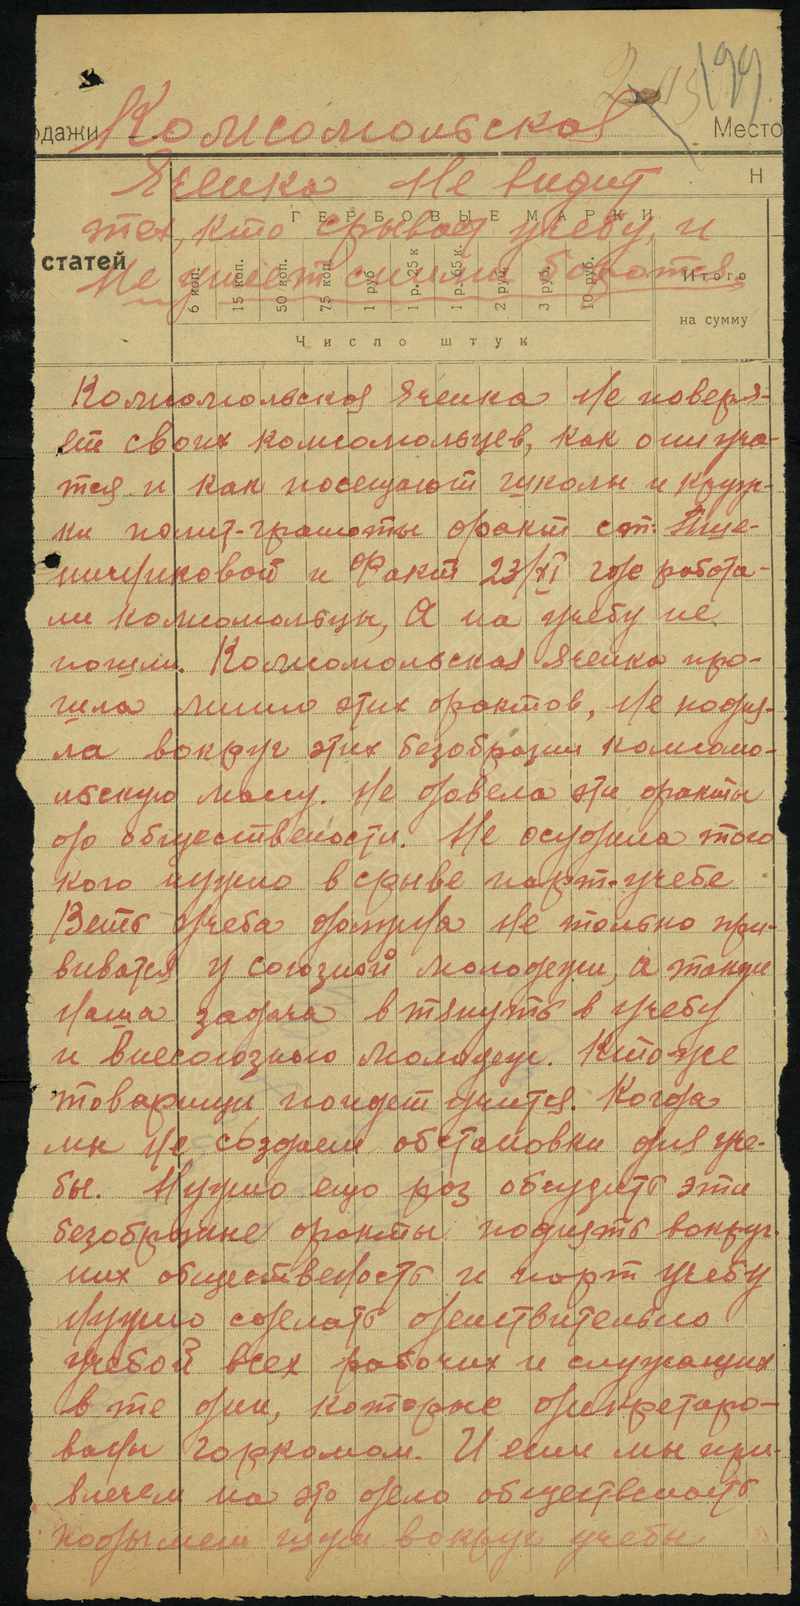 199
одажи
Место
Комсомольская
Ячейка не видит
Н
ГЕРБОВЫЕ МАРКИ
тех, кто срывает учебу, и
статей
не умеет с ними боротся
6 коп.
15 коп.
50 коп.
75 коп.
1 руб
1 р. 25 к
1 р. 65 к.
2 руб.
3 руб.
10 руб.
Итого
на сумму
Число штук
Комсомольская ячейка не поверя-
ет своих комсомольцев, как они уча-
тся и как посещают школы и круж-
ки полит-грамоты факт ст. Пше-
ничниковой и Факт 23/XI где работа-
ли комсомольцы, а на учебу не
пошли. Комсомольская ячейка про-
шла мимо этих фактов, не подня-
ла вокруг этих безобразии комсомо-
льскую массу. Не довела эти факты
до обществености. Не осудила того
кого нужно в срыве парт-учебе
Веть учеба должна не только при-
виватся у союзной молодежи, а также
наша задача втянуть в учебу
и внесоюзного молодеж. Кто-же
товарищи поидет учится. Когда
мы не создаем обстановки для уче-
бы. Нужно ещо роз обсудить эти
безобразные факты поднять вокруг
них общественость и парт учебу
нужно сделать деиствительно
учебой всех рабочих и служащих
в те дни, которые дикретиро-
ваны горкомом. И если мы при-
влечем на это дело общественость
подымем шум вокруг учебы